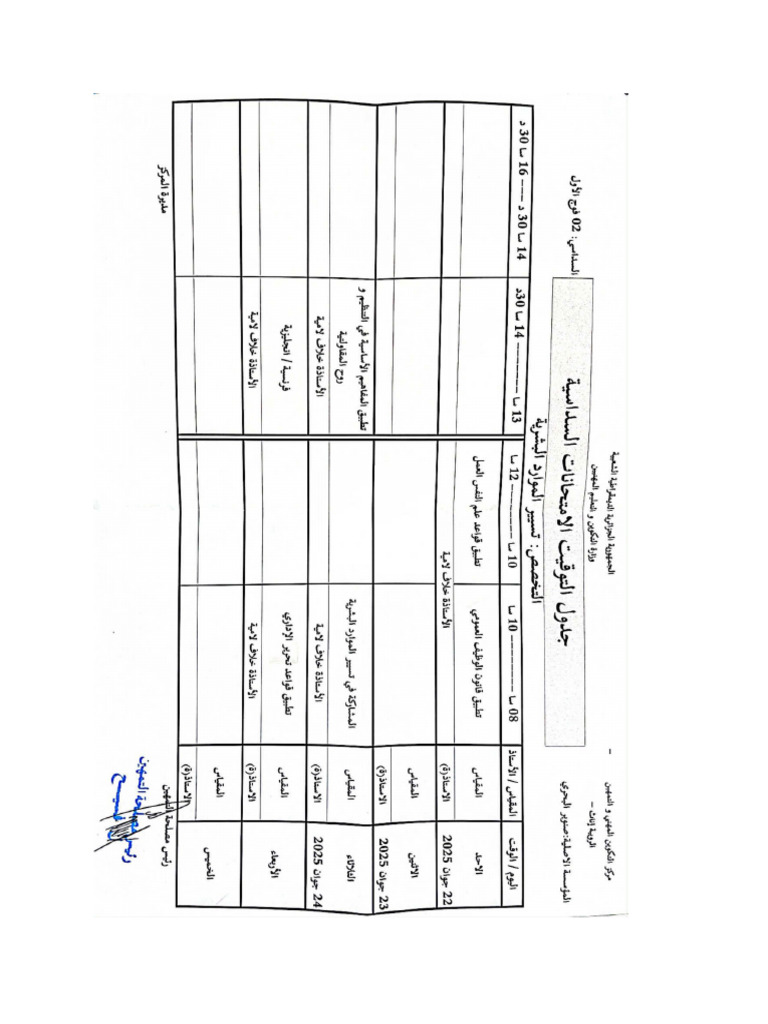 الجمهورية الجزائرية الديمقراطية الشعبية
وزارة التكوين و التعليم المهنيين
مركز التكوين المهني و التمهين
الروبية إناث –
–
المؤسسة الاصلية:صنوبر البحري
جدول التوقيت الامتحانات السداسية
السداسي: 02 فوج الأول
التخصص: تسيير الموارد البشرية
اليوم / الوقت
المقياس / الأستاذ
08 سا -------- 10 سا
10 سا -------- 12 سا
13 سا -------- 14 سا 30د
14 سا 30 د --- 16 سا 30 د
الاحد
22 جوان 2025
المقياس
تطبيق قانون الوظيف العمومي
تطبيق قواعد علم النفس العمل
الأستاذ(ة)
الأستاذة خلاف لامية
الاثنين
23 جوان 2025
المقياس
الاستاذ(ة)
الثلاثاء
24 جوان 2025
المقياس
المشاركة في تسيير الموارد البشرية
تطبيق المفاهيم الأساسية في التنظيم و
روح المقاولتية
الاستاذ(ة)
الأستاذة خلاف لامية
الأستاذة خلاف لامية
الأربعاء
المقياس
تطبيق قواعد تحرير الإداري
فرنسية / انجليزية
الاستاذ(ة)
الأستاذة خلاف لامية
الأستاذة خلاف لامية
الخميس
المقياس
الاستاذ(ة)
رئيس مصلحة التمهين
مديرة المركز
رئيس مصلحة التمهين